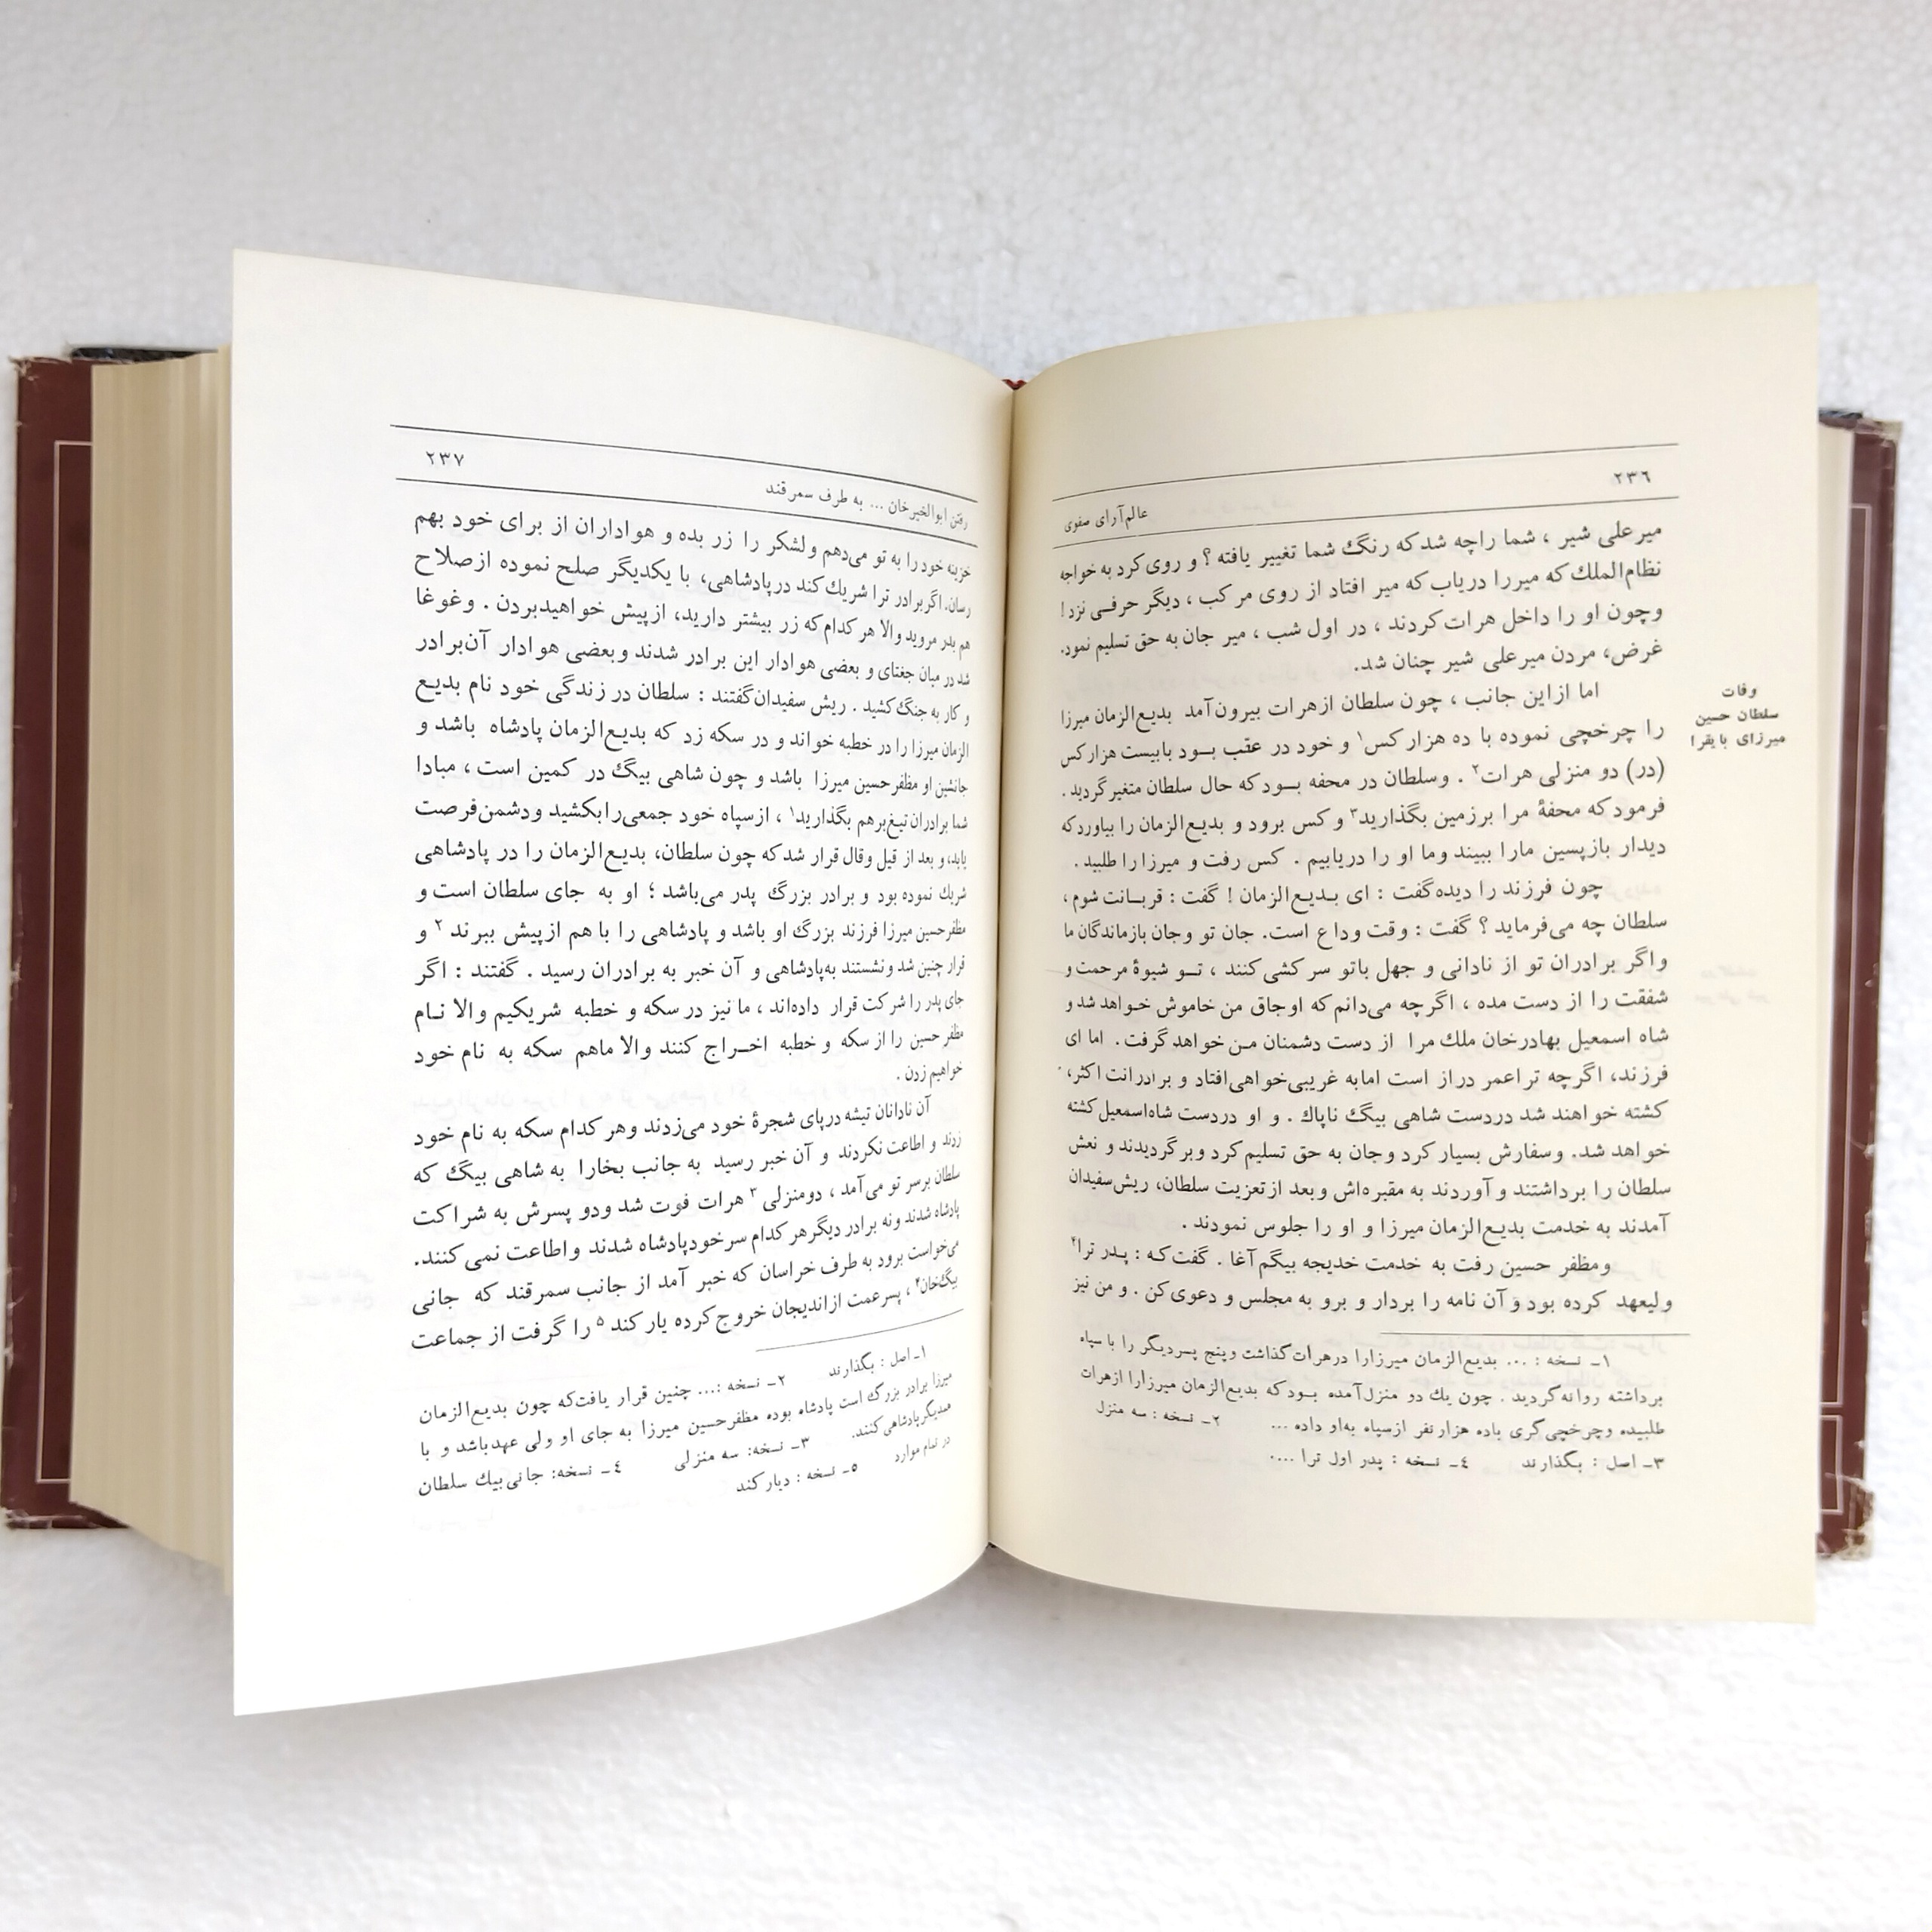 ٢٣٦
عالم‌آرای صفوی
میرعلی شیر ، شما راچه شدکه رنگ شما تغییر یافته ؟ و روی کرد به خواجه
نظام‌الملك که میررا دریاب که میر افتاد از روی مرکب ، دیگر حرفی نزد !
وچون او را داخل هرات کردند ، در اول شب ، میر جان به حق تسلیم نمود.
غرض، مردن میرعلی شیر چنان شد.
وفات
سلطان حسین
میرزای بایقرا
اما ازاین جانب ، چون سلطان ازهرات بیرون‌آمد بدیع‌الزمان میرزا
را چرخچی نموده با ده هزار کس١ و خود در عقب بود بابیست هزار کس
(در) دو منزلی هرات٢ . وسلطان در محفه بودکه حال سلطان متغیر گردید .
فرمودکه محفهٔ مرا برزمین بگذارید٣ و کس برود و بدیع‌الزمان را بیاوردکه
دیدار بازپسین مارا ببیند وما او را دریابیم . کس رفت و میرزا را طلبید .
چون فرزند را دیده‌گفت : ای بدیع‌الزمان ! گفت : قربانت شوم ،
سلطان چه می‌فرماید ؟ گفت : وقت وداع است. جان تو وجان بازماندگان ما
واگر برادران تو از نادانی و جهل باتو سرکشی کنند ، تو شیوهٔ مرحمت و
شفقت را از دست مده ، اگرچه می‌دانم که اوجاق من خاموش خواهد شد و
شاه اسمعیل بهادرخان ملك مرا از دست دشمنان من خواهد گرفت . اما ای
فرزند، اگرچه تراعمر دراز است امابه غریبی‌خواهی‌افتاد و برادرانت اکثر،
کشته خواهند شد دردست شاهی بیگ ناپاك . و او دردست شاه‌اسمعیل کشته
خواهد شد. وسفارش بسیار کرد وجان به حق تسلیم کرد وبرگردیدند و نعش
سلطان را برداشتند و آوردند به مقبره‌اش وبعد ازتعزیت سلطان، ریش‌سفیدان
آمدند به خدمت بدیع‌الزمان میرزا و او را جلوس نمودند .
ومظفر حسین رفت به خدمت خدیجه بیگم آغا . گفت‌که : پدر ترا٤
ولیعهد کرده بود و آن نامه را بردار و برو به مجلس و دعوی‌کن . و من نیز
١ـ نسخه : ... بدیع‌الزمان میرزارا درهرات‌گذاشت وپنج پسردیگر را با سپاه
برداشته روانه‌گردید . چون یك دو منزل‌آمده بودکه بدیع‌الزمان میرزارا ازهرات
طلبیده وچرخچی‌گری باده هزار نفر ازسپاه به‌او داده ... ٢ـ نسخه : سه منزل
٣ـ اصل : بگذارند ٤ـ نسخه : پدر اول ترا ....
٢٣٧
رفتن ابوالخیرخان ... به طرف سمرقند
خزینه خود را به تو می‌دهم ولشکر را زر بده و هواداران از برای خود بهم
رسان. اگربرادر ترا شریك کند درپادشاهی، با یکدیگر صلح نموده ازصلاح
هم بدر مروید والا هرکدام‌که زر بیشتر دارید، ازپیش خواهیدبردن . وغوغا
شد در میان جغتای و بعضی هوادار این برادر شدند وبعضی هوادار آن‌برادر
و کار به جنگ کشید . ریش سفیدان‌گفتند : سلطان در زندگی خود نام بدیع
الزمان میرزا را در خطبه خواند و در سکه زد که بدیع‌الزمان پادشاه باشد و
جانشین او مظفرحسین میرزا باشد و چون شاهی بیگ در کمین است ، مبادا
شما برادران تیغ‌برهم بگذارید١ ، ازسپاه خود جمعی‌رابکشید ودشمن‌فرصت
یابد، و بعد از قیل وقال قرار شدکه چون سلطان، بدیع‌الزمان را در پادشاهی
شریك نموده بود و برادر بزرگ پدر می‌باشد ؛ او به جای سلطان است و
مظفرحسین میرزا فرزند بزرگ او باشد و پادشاهی را باهم ازپیش ببرند ٢ و
قرار چنین شد ونشستند به‌پادشاهی و آن خبر به برادران رسید . گفتند : اگر
جای پدر را شرکت قرار داده‌اند ، ما نیز در سکه و خطبه شریکیم والا نام
مظفر حسین را از سکه و خطبه اخراج کنند والا ماهم سکه به نام خود
خواهیم زدن .
آن نادانان تیشه درپای شجرهٔ خود می‌زدند وهرکدام سکه به نام خود
زدند و اطاعت نکردند و آن خبر رسید به جانب بخارا به شاهی بیگ که
سلطان برسر تو می‌آمد ، دومنزلی ٣ هرات فوت شد ودو پسرش به شراکت
پادشاه شدند ونه برادر دیگرهرکدام سرخودپادشاه شدند واطاعت نمی‌کنند.
می‌خواست برود به طرف خراسان که خبر آمد از جانب سمرقند که جانی
بیگ‌خان٤ ، پسرعمت ازاندیجان خروج‌کرده یارکند ٥ را گرفت از جماعت
١ـ اصل : بگذارند ٢ـ نسخه :... چنین قرار یافت‌که چون بدیع‌الزمان
میرزا برادر بزرگ است پادشاه بوده مظفرحسین میرزا به جای او ولی عهدباشد و با
همدیگرپادشاهی‌کنند. ٣ـ نسخه: سه منزلی ٤ـ نسخه: جانی‌بیك سلطان
در تمام موارد ٥ـ نسخه : دیارکند